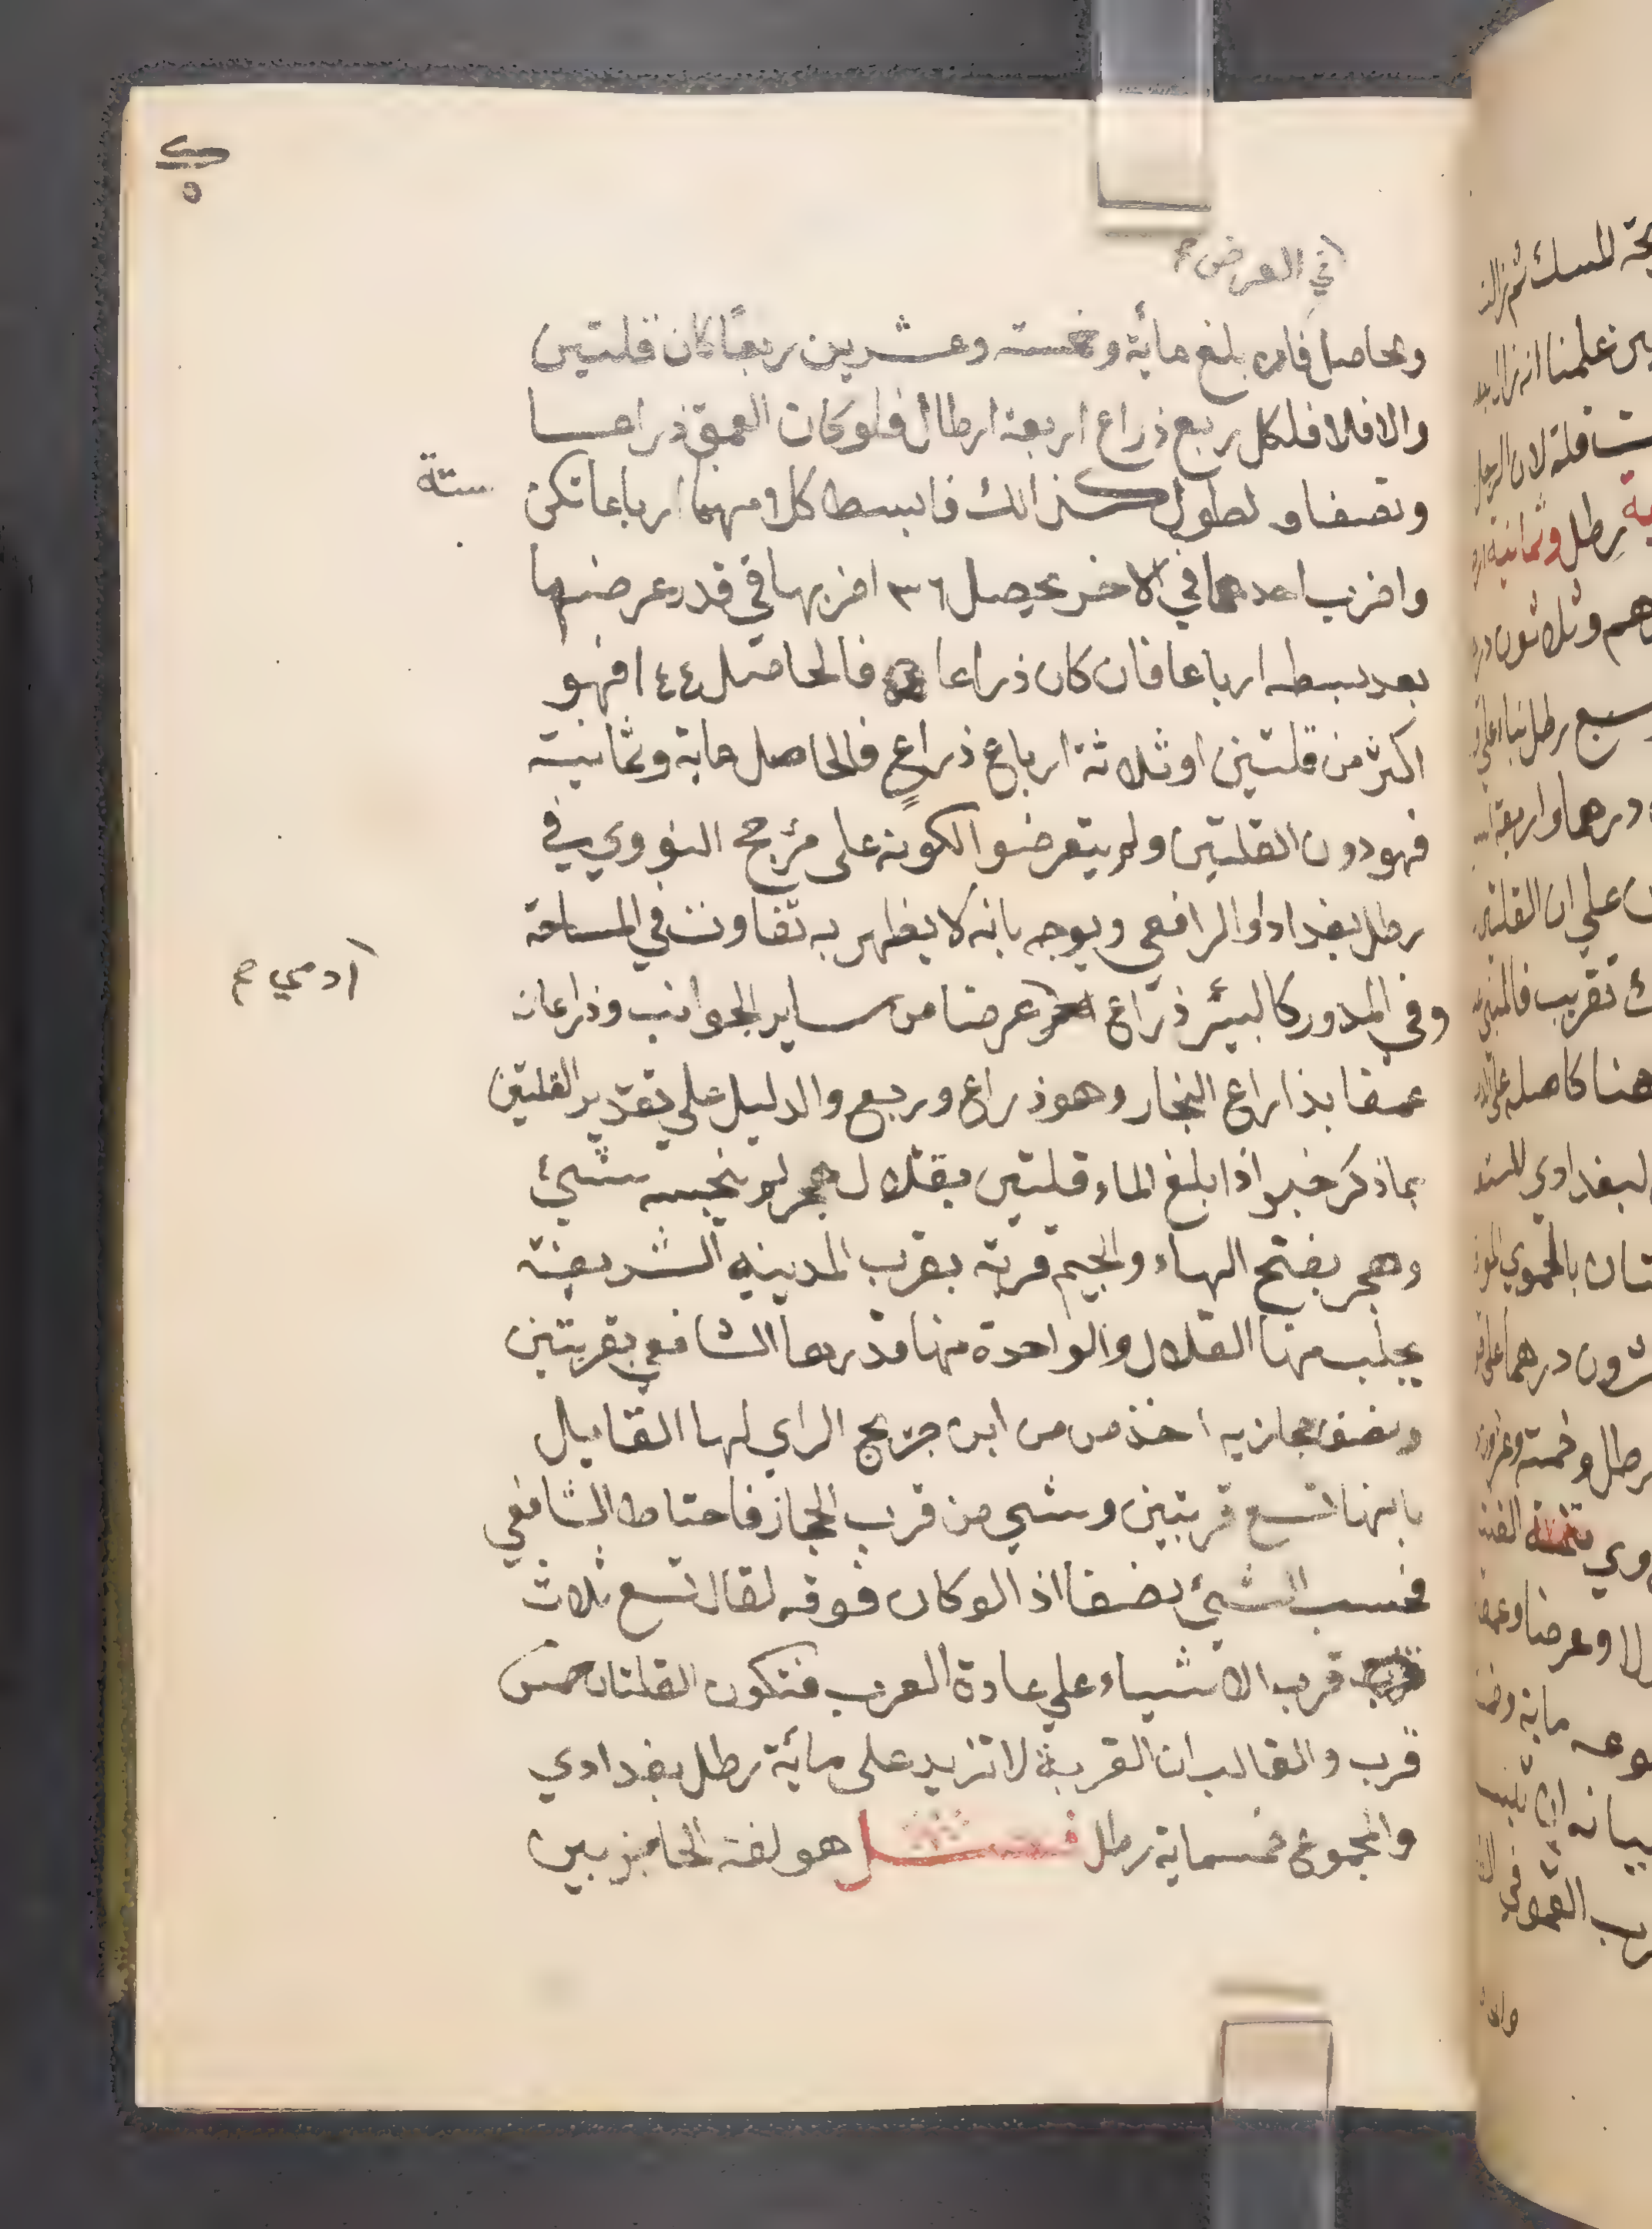 في العرض
والحاصل فان بلغ مائة وخمسة وعشرين ربعًا كان قلتين
والا فلا فلكل ربع ذراع اربعة ارطال فلو كان العمق ذراعا
ونصفا و لطول كذالك فابسط كلا منهما ارباعا تكن ستة
واضرب احدهما في الاخر يحصل ٣٦ اضربها في قدر عرضها
بعد بسطه ارباعا فان كان ذراعا فالحاصل ١٤٤ فهو
اكثر من قلتين او ثلاثة ارباع ذراعٍ فالحاصل ماية وثمانية
فهو دون القلتين ولم يتعرضوا الكونه على مرجح النووي في
رطل بغداد او الرافعي ويوجه بانه لا يظهر به تفاوت في المساحة
وفي المدور كالبئر ذراع عرضا من ساير الجوانب وذراعان
آدمي
عمقا بذاراع النجار وهو ذراع وربع والدليل علي تقدير القلتين
بما ذكر خبر اذا بلغ الماء قلتين بقلال هجر لم ينجسه شئ
وهجر بفتح الهاء والجيم قرية بقرب المدينه الشريفة
يجلب منها القلال والواحدة منها قدرها الشافعي بقربتين
ونصف حجازيه اخذ من من ابن جريج الراي لها القايل
بانها تسع قربتين وشي من قرب الحجاز فاحتاط الشافعي
فحسب الشئ نصفا اذ الو كان فوقه لقال تسع ثلاث
قرب الا شياء علي عادة العرب فتكون القلتان خمس
قرب والغالب ان القربة لا تزيد على مائة رطل بغدادي
والمجموع خمسماية رطل فصل هو لغة الحاجز بين